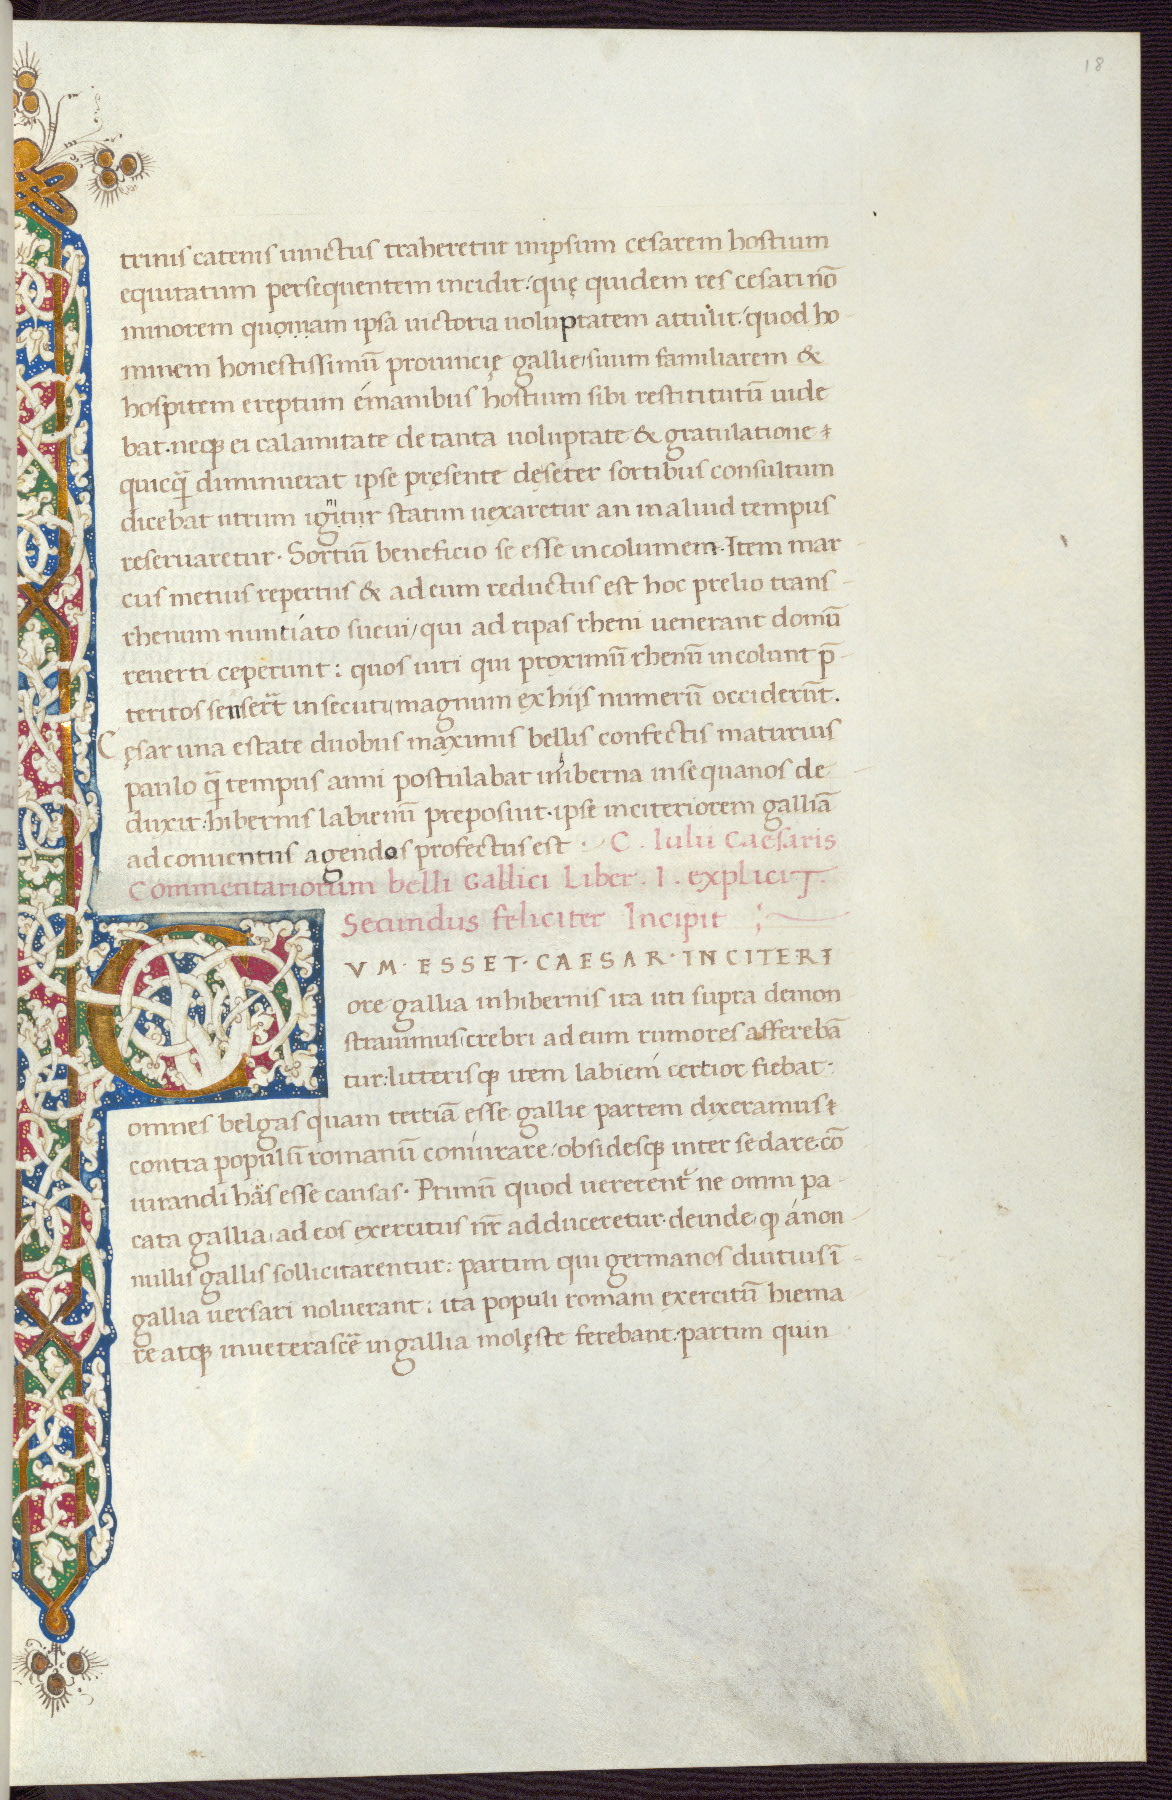 18
trinis catenis uinctus traheretur inipsum cesarem hostium
equitatum persequentem incidit: quę quidem res cesari nō
minorem quoniam ipsa uictoria uoluptatem attulit: quod ho
minem honestissimū prouincię gallie/ suum familiarem &
hospitem ereptum émanibus hostium sibi restititutū uide
bat. neqꝫ ei calamitate de tanta uoluptate & gratulatione
quicq̄ diminuerat ipse pręsente dęseter sortibus consultum
dicebat utrum igitur statim uexaretur an inaliud tempus
reseruaretur. Sortiū beneficio se esse incolumem. Item mar
cus metius repertus & adeum reductus est hoc prelio trans
rhenum nuntiato sueui/ qui ad ripas rheni uenerant domū
reuerti ceperunt: quos iuri qui proximū rhenū incolunt p̄
territos senserūt insecuti magnum ex hijs numerū occiderūt.
Cęsar una estate duobus maximis bellis confectis maturius
paulo q̄ tempus anni postulabat inhiberna insequanos de
duxit: hibernis labienū preposuit. ipse inciteriorem galliā
ad conuentus agendos profectus est. C. Iulii Caesaris
Commentariorum belli Gallici Liber. I. explicit.
Secundus feliciter Incipit
CVM. ESSET. CAESAR. INCITERI
ore gallia inhibernis ita uti supra demon
strauimus crebri adeum rumores afferebā
tur: litterisqꝫ item labieni certior fiebat.
omnes belgas quam tertiā esse gallie partem dixeramus
contra populū romanū coniurare/ obsidesqꝫ inter se dare. cō
iurandi hās esse causas. Primū quod uererent̄ ne omni pa
cata gallia, ad eos exercitus nr̄ adduceretur. deinde qꝫ ánon
nullis gallis sollicitarentur: partim qui germanos diutius ī
gallia uersari noluerant: ita populi romani exercitū hiema
re atqꝫ inueterascē̄ ingallia molęste ferebant: partim quin